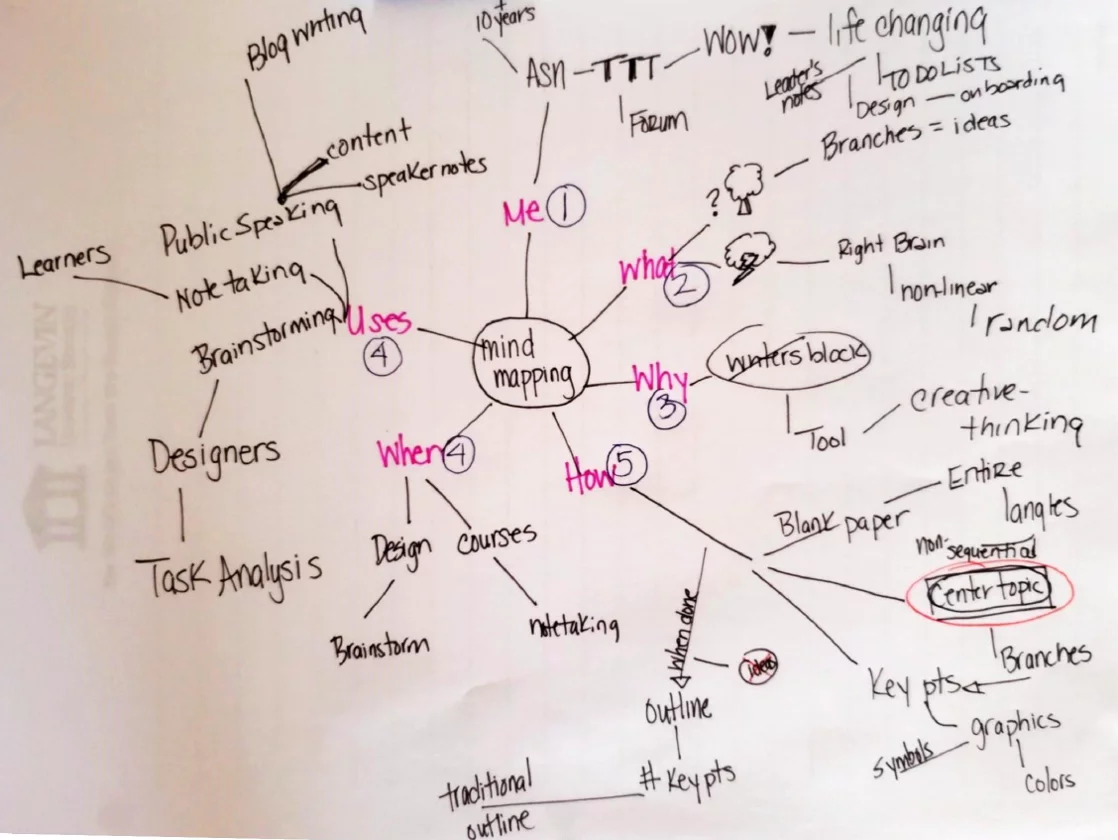 mind
mapping
Me 1
10+ years
ASN
TTT
Forum
WOW!
life changing
Leader's
notes
TO DO LISTS
Design
onboarding
What
2
?
Branches = ideas
Right Brain
non-linear
random
Why
3
writers block
Tool
creative-
thinking
How 5
Blank paper
Entire
non-
sequential
Center topic
Branches
Key pts
graphics
symbols
Colors
When done
ideas
outline
# Key pts
traditional
outline
When 4
Design
Brainstorm
courses
notetaking
Uses
4
Public Speaking
Blog writing
content
speaker notes
Note taking
Learners
Brainstorming
Designers
Task Analysis
LANGEVIN